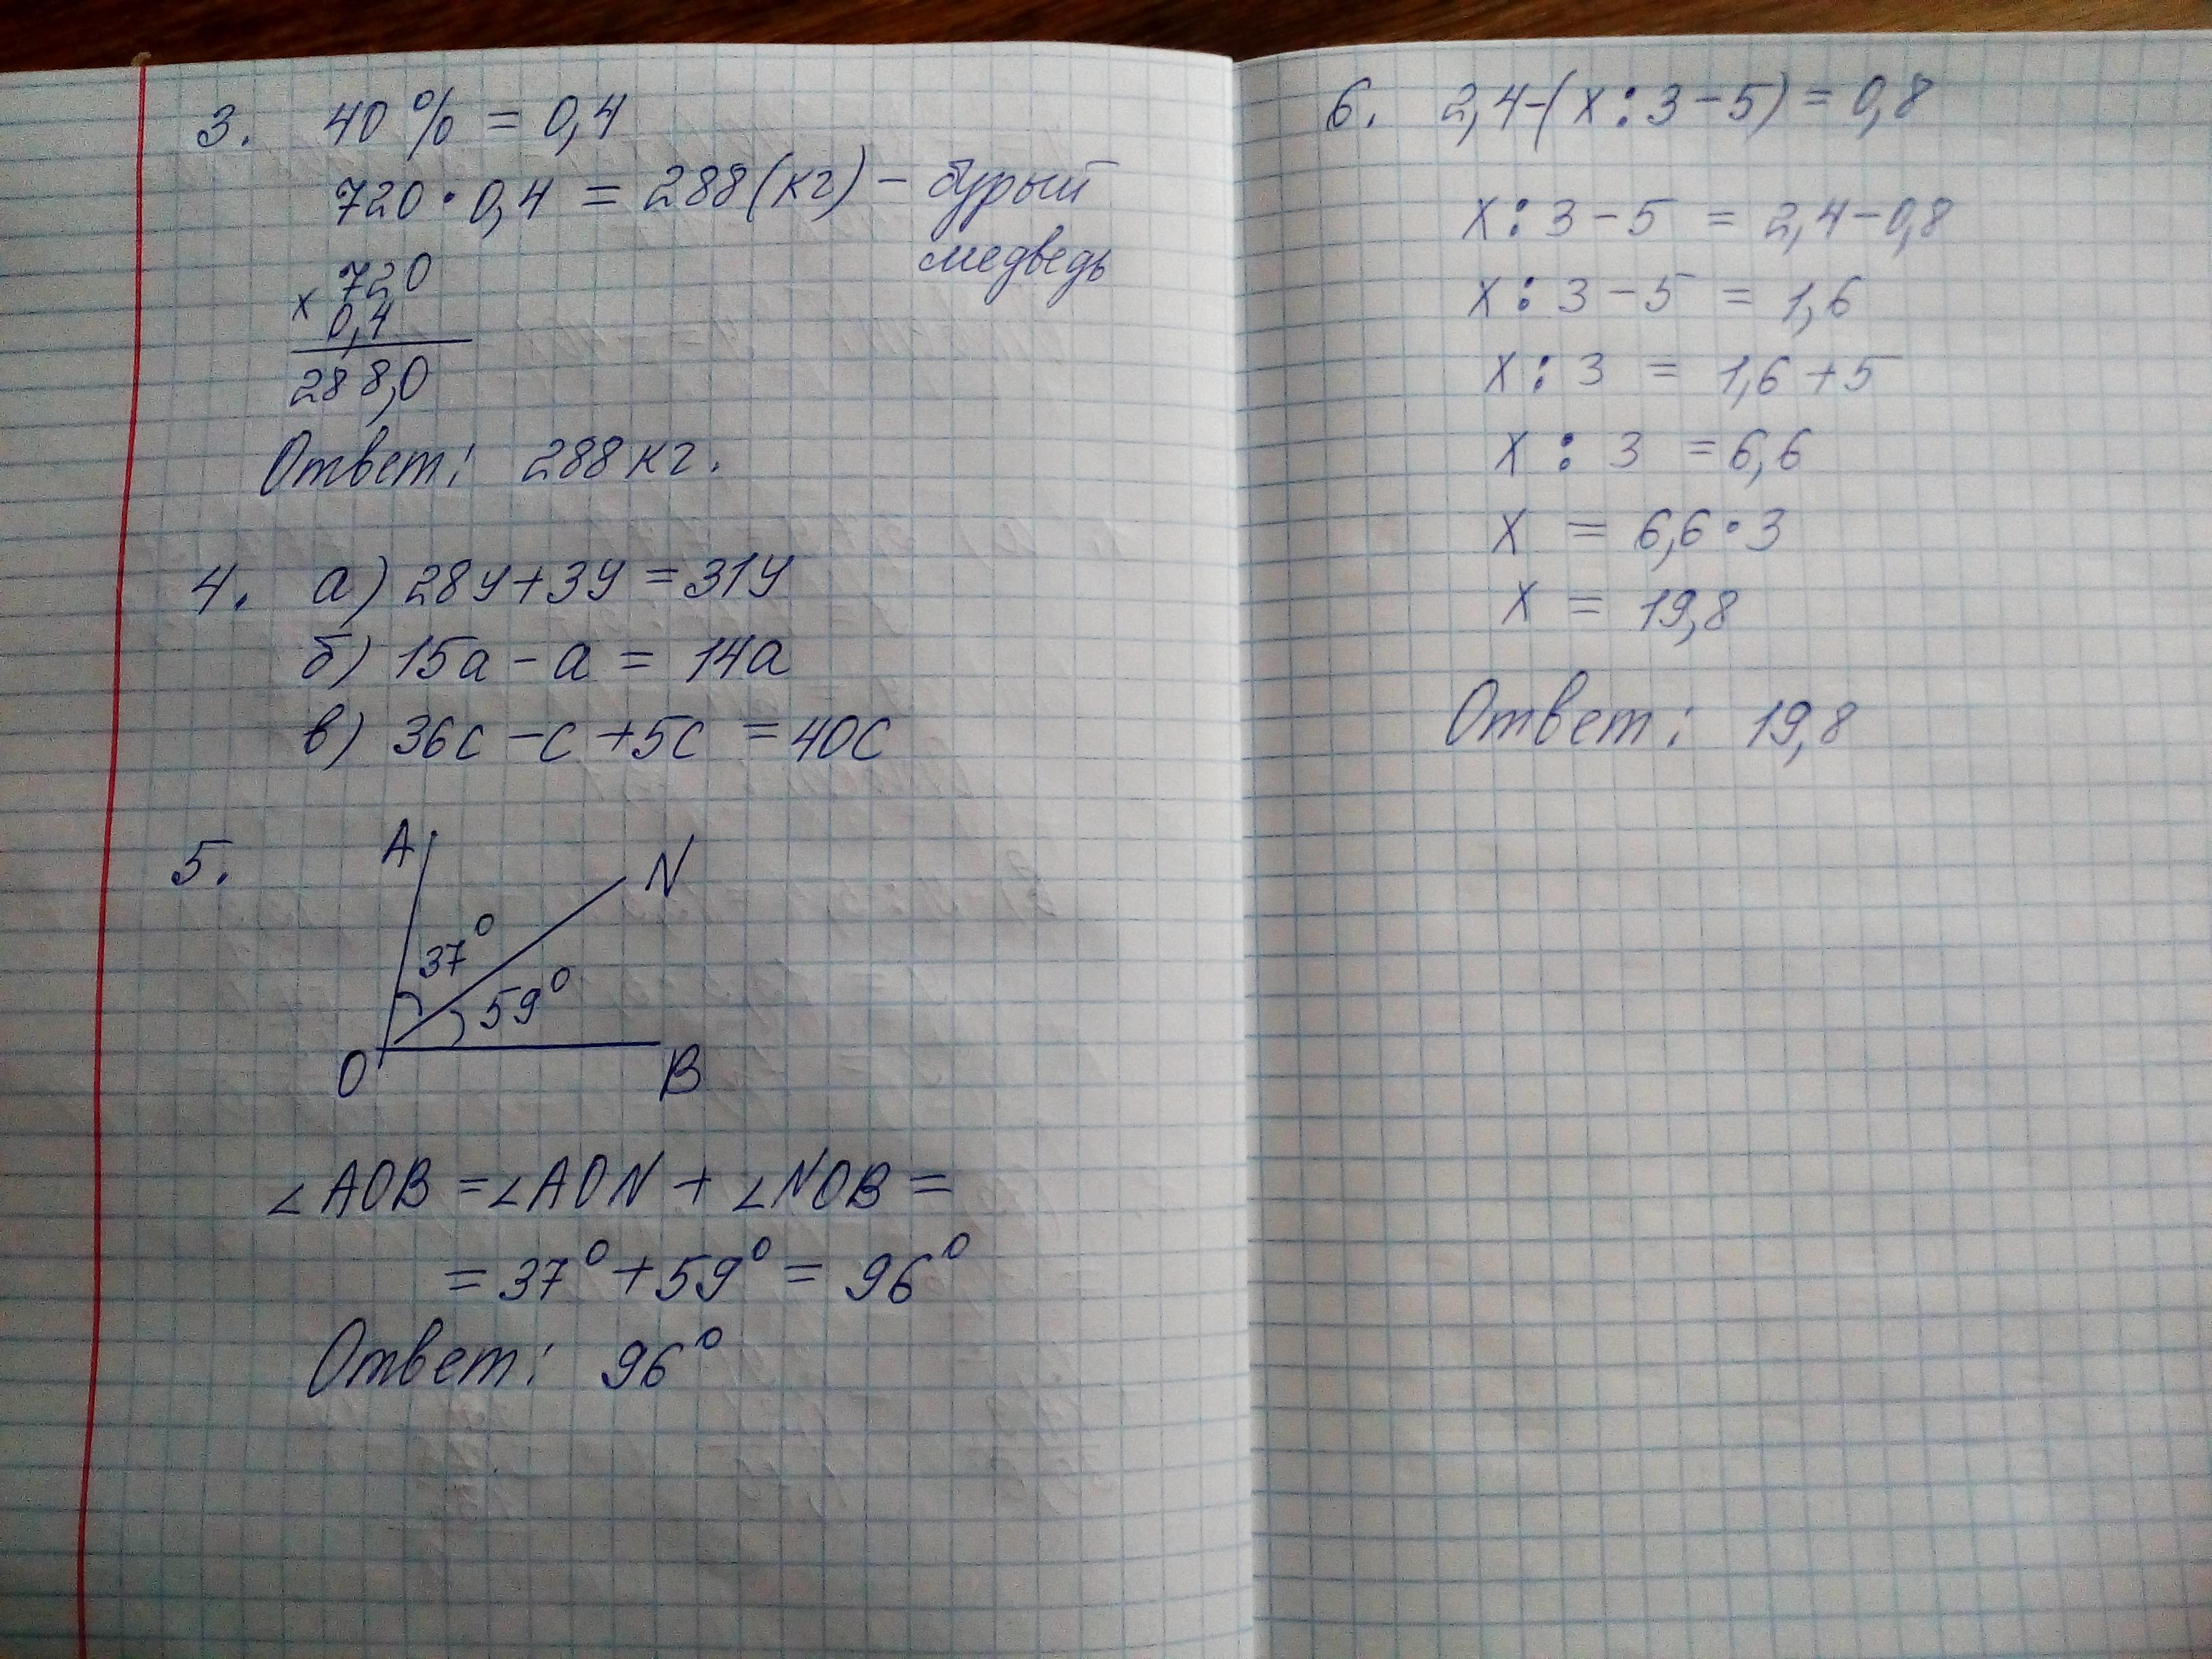 3. 40% = 0,4
720 · 0,4 = 288 (кг) – бурый
медведь
720
× 0,4
288,0
Ответ: 288 кг.
4. а) 28y + 3y = 31y
б) 15a – a = 14a
в) 36c – c + 5c = 40c
5.
A
N
37°
59°
O
B
∠AOB = ∠AON + ∠NOB =
= 37° + 59° = 96°
Ответ: 96°
6. 2,4 – (x : 3 – 5) = 0,8
x : 3 – 5 = 2,4 – 0,8
x : 3 – 5 = 1,6
x : 3 = 1,6 + 5
x : 3 = 6,6
x = 6,6 · 3
x = 19,8
Ответ: 19,8